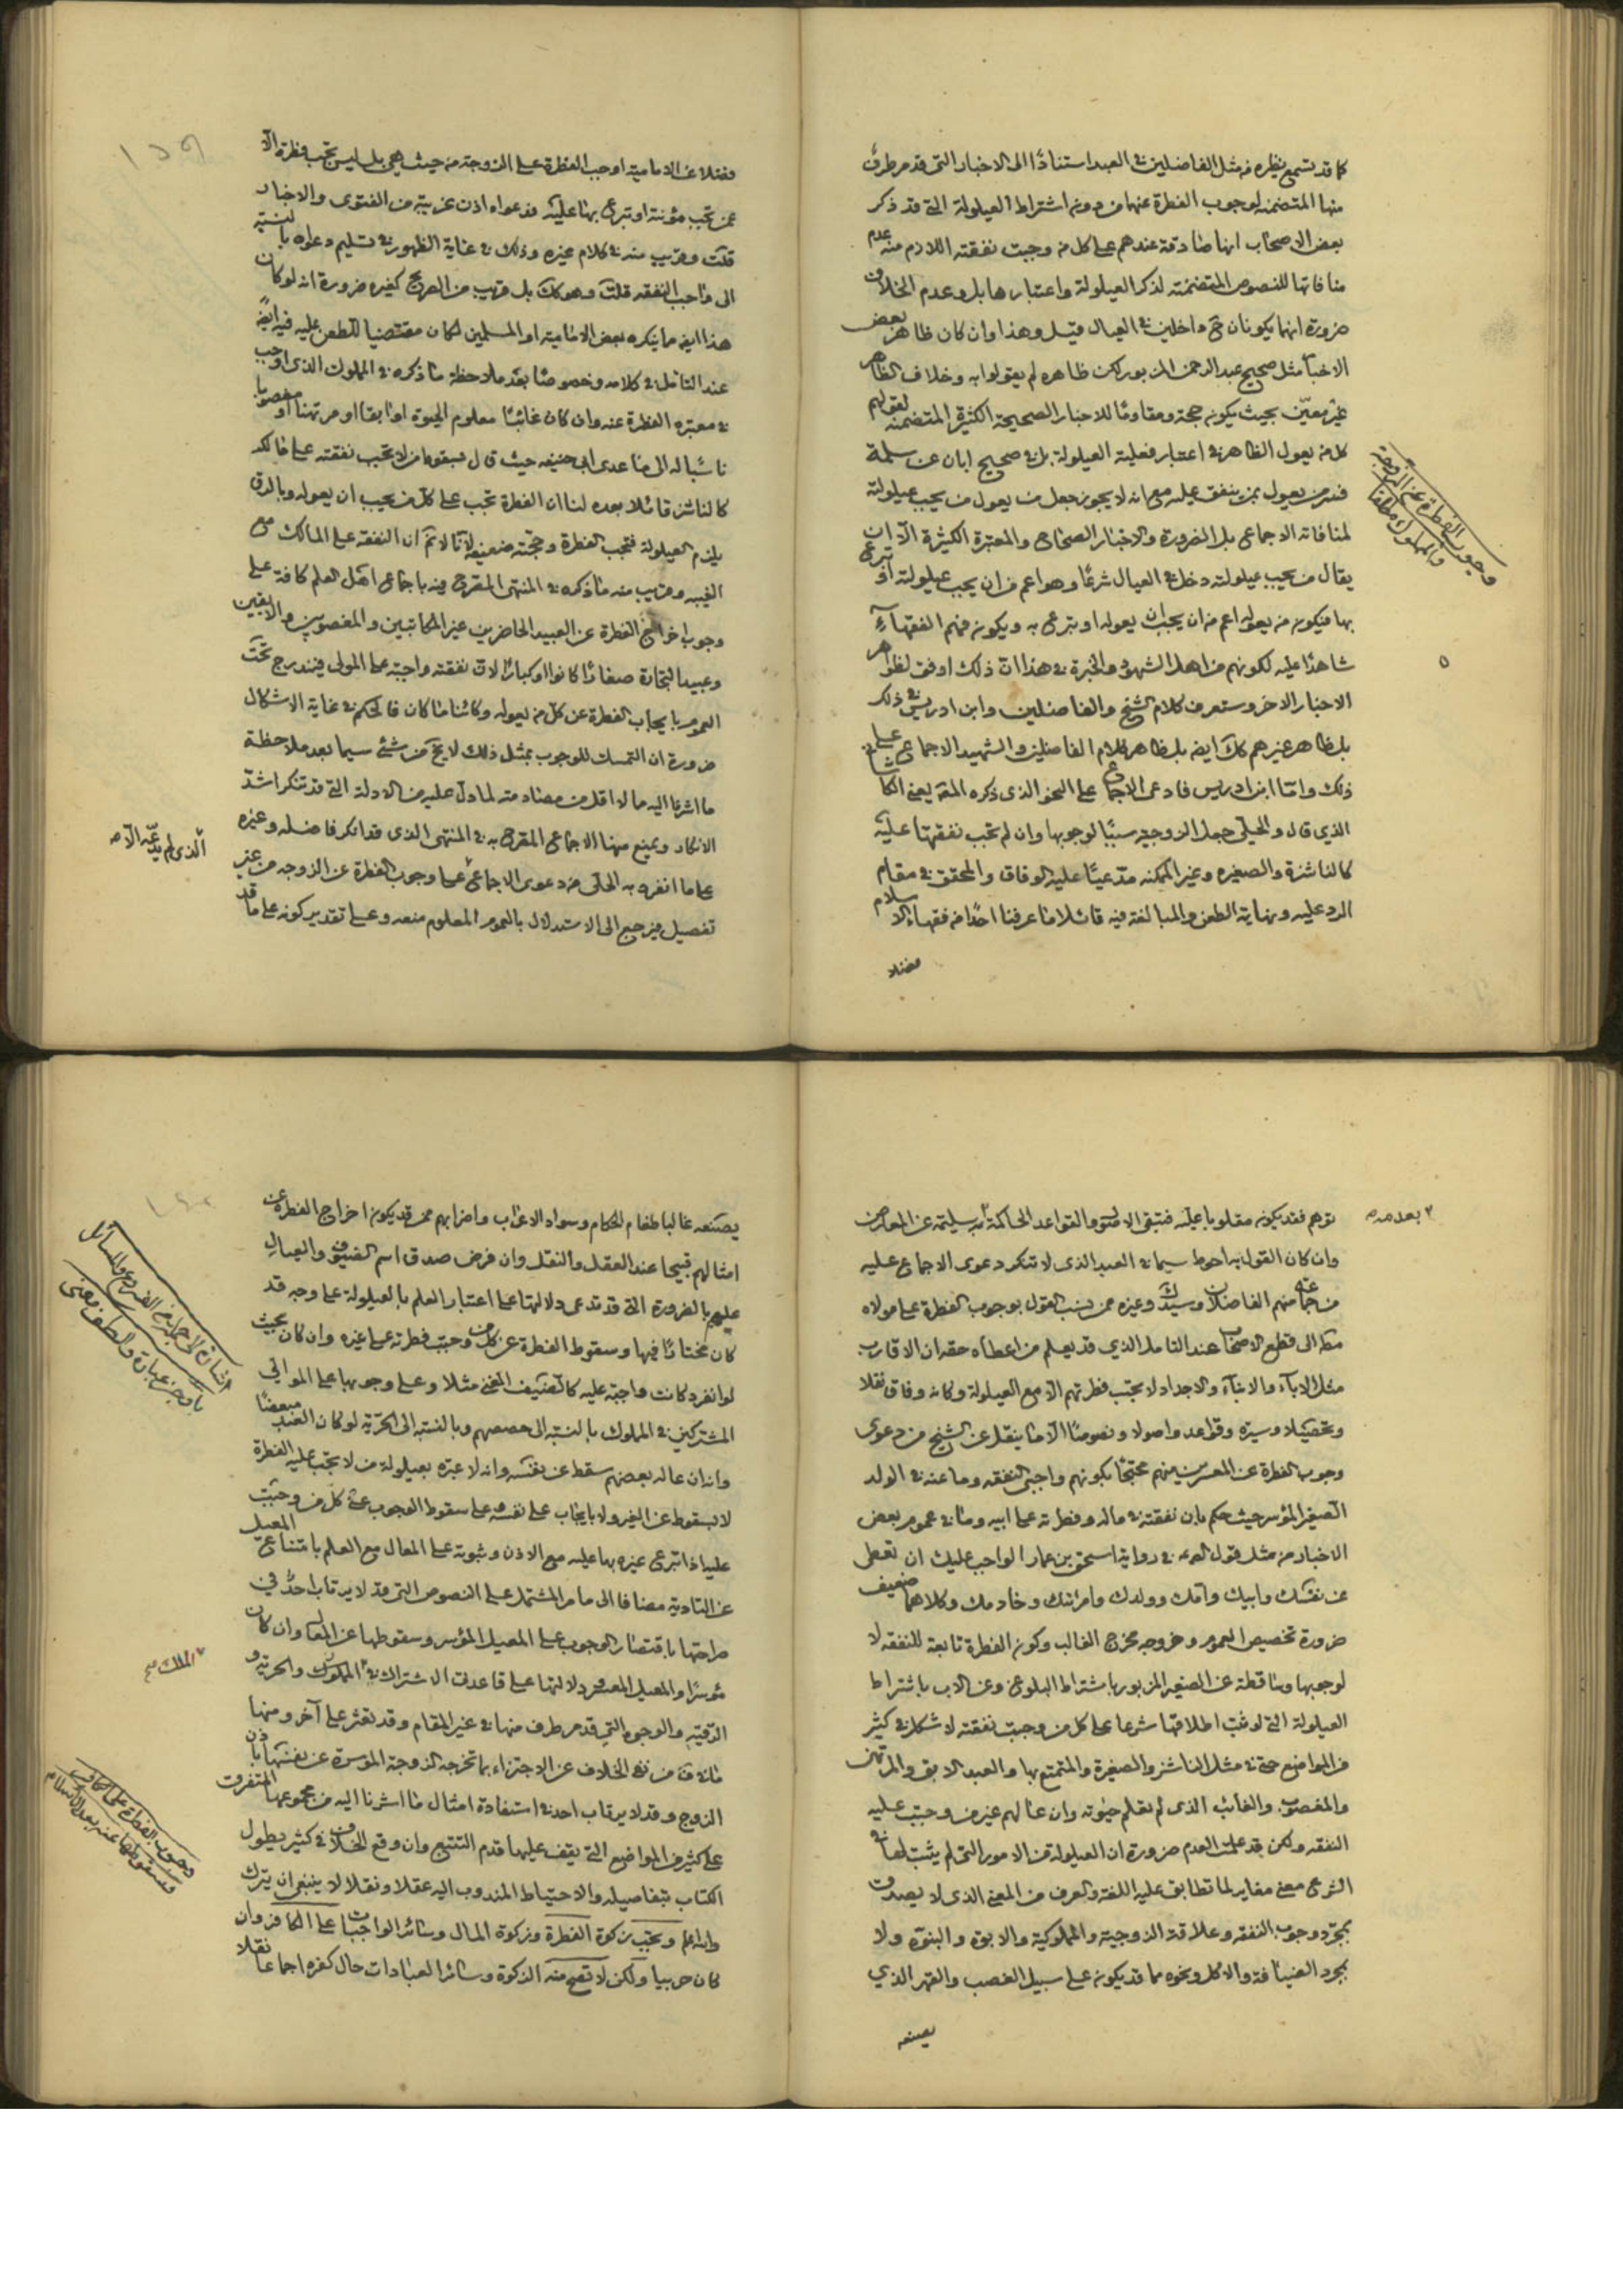 كما قد تسمع نظيره من مثل الفاضلين في العبد استنادًا الى الاخبار التي قد مر طرف
منها المتضمنه لوجوب الفطرة عنهما من دون اشتراط العيلولة التي قد ذكر
بعض الاصحاب انها صادقة عندهم على كل من وجبت نفقته اللازم منه عدم
منافاتها للنصوص المتضمنة لذكر العيلولة واعتبارها بل وعدم الخلاف
ضرورة انهما يكونان ح داخلين في العيال قيل وهذا وان كان ظاهر بعض
الاخبار مثل صحيح عبد الرحمن المزبور لكن ظاهره لم يقولوا به وخلاف الظاهر
غير معيّن بحيث يكون حجة ومقاومًا للاخبار الصحيحة الكثيرة المتضمنة لقولهم
كل من يعول الظاهر في اعتبار فعلية العيلولة بل في صحيح ابان عن سلمة
فسر من يعول بمن ينفق عليه مع انه لا يجوز جعل من يعول من يجب عيلولته
لمنافاته الاجماع بل الضرورة والاخبار الصحاح والمعتبرة الكثيرة الّا ان
يقال من يجب عيلولته دخل في العيال شرعًا وهو اعم من ان يجب عيلولته او تبرع
بها فيكون من يعوله اعم من ان يجب ان يعوله او يتبرع به ويكون فهم الفقهاء
شاهدًا عليه لكونهم من اهل الشهود والخبرة في هذا انّ ذلك اوفق لظواهر
الاخبار الاخر وستعرف كلام الشيخ والفاضلين وابن ادريس في ذلك
بل ظاهر غيرهم كك ايضه بل ظاهر كلام الفاضلين والشهيد الاجماع على
ذلك وامّا ابن ادريس فادعى الاجماع على النحو الذي ذكره المقه يعني الكاشاني
الذي قال والحلّي جعل الزوجية سببًا لوجوبها وان لم تجب نفقتها عليه
كالناشزة والصغيره وغير الممكنه مدّعيًا عليه الوفاق والمحقق في مقام
الرد عليه ونهاية الطعن والمبالغة فيه قائلا ما عرفنا احدًا من فقهاء الاسلام
فضلا
وجوب الفطرة عن الزوجة
والمملوك مطلقا
١٣٩
فضلا عن الامامية اوجب الفطرة على الزوجة من حيث هي بل ليس تجب فطرة الّا
عمن تجب مؤنته او تبرع بها عليه فدعواه اذن عرية من الفتوى والاخبار
قلت وقريب منه في كلام غيره وذلك في غاية الظهور في تسليم دعواه بالنسبة
الى واجب النفقه قلت وهو كك بل قريب من الصريح كغيره ضرورة انه لو كان
هذا ايضه ما ينكره بعض الامامية او المسلمين لكان مقتضيا للطعن عليه فيه ايضه
عند التامل في كلامه وخصوصًا بعد ملاحظة ما ذكره في المملوك الذي اوجب
في معتبره الفطرة عنه وان كان غائبًا معلوم الحيوة او ابقا او مرتهنا او مغصوبا
ناسبًا له الى ما عدى ابي حنيفه حيث قال بسقوطها من لا تجب نفقته على مالكه
كالناشز قائلا بعده لنا ان الفطرة تجب على كل من يجب ان يعوله وبالرق
يلزم العيلولة فتجب الفطرة وحجته ضعيفة لانا لا نم ان النفقه على المالك مع
الغيبه وقريب منه ما ذكره في المنتهى المقرح فيه باجماع اهل العلم كافة على
وجوب اخراج الفطرة عن العبيد الحاضرين غير المكاتبين والمغصوبين والابقين
وعبيد التجارة صغارًا كانوا او كبارًا لان نفقته واجبة على المولى فيندرج تحت
العموم بايجاب الفطرة عن كل من يعوله وكائنا ما كان فالحكم في غاية الاشكال
ضرورة ان التمسك للوجوب بمثل ذلك لا يخ من شئ سيما بعد ملاحظة
ما اشرنا اليه مما لا اقل من مضادمته لما دلّ عليه من الادلة التي قد تنكر اشدّ
الانكار ويمنع منها الاجماع المقرح به في المنتهى الذي قد انكر فاضله وغيره
على ما انفرد به الحلّي من دعوى الاجماع على وجوب الفطرة عن الزوجه من غير
تفصيل فيرجع الى الاستدلال بالعموم المعلوم منعه وعلى تقدير كونه على ما قد
الذي لم يدعه الا
توهم فقد يكون مقلوبا عليه فتبقى الاصول والقواعد الحاكمة به سليمة عن المعارض
وان كان القول به احوط سيما في العبد الذي لا تنكر دعوى الاجماع عليه
من جماعة منهم الفاضلان وسيد ك وغيره ممن ينسب القول بوجوب الفطرة على مولاه
مطه الى قطع الاصحاب عند التامل الذي قد يعلم من اعطاه حقه ان الاقارب
مثل الاباء والابناء والاجداد لا تجب فطرتهم الّا مع العيلولة وكانه وفاق نقلا
وتحصيلا وسيرة وقواعد واصولا ونصوصًا الّا ما ينقل عن الشيخ من دعوى
وجوب الفطرة عن المعسرين منهم محتجًا بكونهم واجبي النفقه وما عنه في الولد
الصغير الموسر حيث حكم بان نفقته في ماله وفطرته على ابيه وما في عموم بعض
الاخبار من مثل قول ع في رواية اسحق بن عمار الواجب عليك ان تعطى
عن نفسك وابيك وامك وولدك وامرئتك وخادمك وكلاهما ضعيف
ضرورة تخصيص العموم وخروجه مخرج الغالب وكون الفطرة تابعة للنفقه لا
لوجوبها وساقطة عن الصغير المزبور باشتراط البلوغ وعن الاب باشتراط
العيلولة التي لو ثبت اطلاقها شرعا على كل من وجبت نفقته لاشكل في كثير
من المواضع حتى في مثل الناشز والصغيرة والمتمتع بها والعبد الابق والمرتهن
والمغصوب والغائب الذي لم يعلم حيوته وان عالهم غير من وجبت عليه
النفقه ولكن قد علمت العدم ضرورة ان العيلولة من الامور التي لم يثبت لها في
الشرع معنى مغاير لما تطابق عليه اللغة والعرف من المعنى الذي لا يصدق
بمجرّد وجوب النفقه وعلاقة الزوجية والمملوكية والابوة والبنوة ولا
بمجرد الضيافة والاكل ونحوه مما قد يكون على سبيل الغصب والقهر الذي
يصنعه
يصنعه غالبا طغام الحكام وسواد الاعراب واضرابهم ممن قد يكون اخراج الفطرة عن
امثالهم قبيحا عند العقل والنقل وان فرض صدق اسم الضيوف والعيال
عليهم بالضرورة التي قد تدعى دلالتها على اعتبار العلم بالعيلولة على وجه قد
كان مختارًا فيها وسقوط الفطرة عن كل من وجبت فطرته على غيره وان كان بحيث
لو انفرد كانت واجبة عليه كالضيف الغني مثلا وعلى وجوبها على الموالي
المشتركين في المملوك بالنسبة الى حصصهم وبالنسبة الى الحرّية لو كان العبد مبعضًا
وانه ان عاله بعضهم سقط عن نفسه وانه لا عبرة بعيلولة من لا تجب عليه الفطرة
لا لسقوط عن الغير ولا بايجاب على نفسه على سقوط الوجوب عن كل من وجبت
عليه اذا تبرع غيره بها عليه مع الاذن وثبوته على المعال مع العلم بامتناع المعيل
عن التادية مضافا الى ما مر المشتمل على النصوص التي قد لا يرتاب احدٌ في
صراحتها باقتصار الوجوب على المعيل الموسر وسقوطها عن المعال وان كان
موسرًا والمعيل المعسر ودلالتها على قاعدتي الاشتراك في المملوك والحرية و
الرقية والوجوه التي قد مر طرف منها في غير المقام وقد تعثر على آخر ومنها
ما في ف من نفى الخلاف عن الاجتزاء بما تخرجه الزوجة الموسرة عن نفسها باذن
الزوج وقد لا يرتاب احد في استفادة امثال ما اشرنا اليه من مجموعها المتفرق
على كثير من المواضع التي يقف عليها قدم التتبع وان وقع الخلاف في كثير يطول
الكتاب بتفاصيله والاحتياط المندوب اليه عقلا ونقلا لا ينبغي ان يترك
والله اعلم وتجب زكوة الفطرة وزكوة المال وسائر الواجبات على الكافر وان
كان حربيا ولكن لا تصح منه الزكوة وسائر العبادات حال كفره اجماعا نقلا
الملك صح
وجوب الفطرة على الكافر
وسقوطها عنه بعد الاسلام